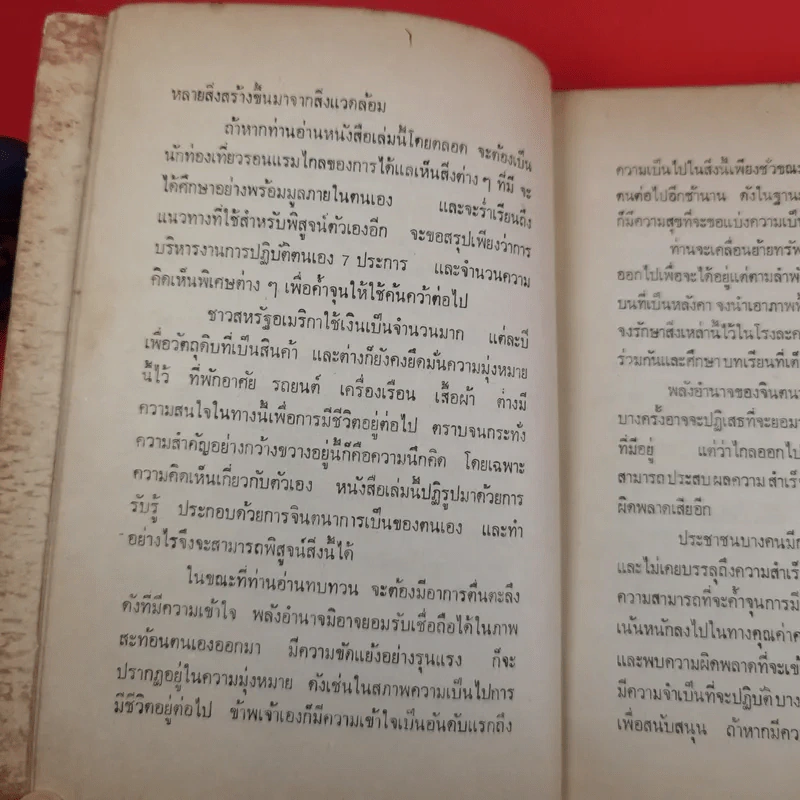 หลายสิ่งสร้างขึ้นมาจากสิ่งแวดล้อม
ถ้าหากท่านอ่านหนังสือเล่มนี้โดยตลอด จะต้องเป็น
นักท่องเที่ยวรอนแรมไกลของการได้แลเห็นสิ่งต่าง ๆ ที่มี จะ
ได้ศึกษาอย่างพร้อมมูลภายในตนเอง และจะร่ำเรียนถึง
แนวทางที่ใช้สำหรับพิสูจน์ตัวเองอีก จะขอสรุปเพียงว่าการ
บริหารงานการปฏิบัติตนเอง 7 ประการ และจำนวนความ
คิดเห็นพิเศษต่าง ๆ เพื่อค้ำจุนให้ใช้ค้นคว้าต่อไป
ชาวสหรัฐอเมริกาใช้เงินเป็นจำนวนมาก แต่ละปี
เพื่อวัตถุดิบที่เป็นสินค้า และต่างก็ยังคงยึดมั่นความมุ่งหมาย
นี้ไว้ ที่พักอาศัย รถยนต์ เครื่องเรือน เสื้อผ้า ต่างมี
ความสนใจในทางนี้เพื่อการมีชีวิตอยู่ต่อไป ตราบจนกระทั่ง
ความสำคัญอย่างกว้างขวางอยู่นี้ก็คือความนึกคิด โดยเฉพาะ
ความคิดเห็นเกี่ยวกับตัวเอง หนังสือเล่มนี้ปฏิรูปมาด้วยการ
รับรู้ ประกอบด้วยการจินตนาการเป็นของตนเอง และทำ
อย่างไรจึงจะสามารถพิสูจน์สิ่งนี้ได้
ในขณะที่ท่านอ่านทบทวน จะต้องมีอาการตื่นตะลึง
ดังที่มีความเข้าใจ พลังอำนาจมิอาจยอมรับเชื่อถือได้ในภาพ
สะท้อนตนเองออกมา มีความขัดแย้งอย่างรุนแรง ก็จะ
ปรากฏอยู่ในความมุ่งหมาย ดังเช่นในสภาพความเป็นไปการ
มีชีวิตอยู่ต่อไป ข้าพเจ้าเองก็มีความเข้าใจเป็นอันดับแรกถึง
ความเป็นไปในสิ่งนี้เพียงชั่วขณะ
ตนต่อไปอีกช้านาน ดังในฐานะ
ก็มีความสุขที่จะขอแบ่งความเป็น
ท่านจะเคลื่อนย้ายทรัพ
ออกไปเพื่อจะได้อยู่แต่ตามลำพั
บนที่เป็นหลังคา จงนำเอาภาพ
จงรักษาสิ่งเหล่านี้ไว้ในโรงละค
ร่วมกันและศึกษาบทเรียนที่เด็
พลังอำนาจของจินตนา
บางครั้งอาจจะปฏิเสธที่จะยอม
ที่มีอยู่ แต่ว่าไกลออกไป
สามารถประสบผลความสำเร็
ผิดพลาดเสียอีก
ประชาชนบางคนมีก
และไม่เคยบรรลุถึงความสำเร็
ความสามารถที่จะค้ำจุนการมี
เน้นหนักลงไปในทางคุณค่าค
และพบความผิดพลาดที่จะเข้
มีความจำเป็นที่จะปฏิบัติบาง
เพื่อสนับสนุน ถ้าหากมีคว